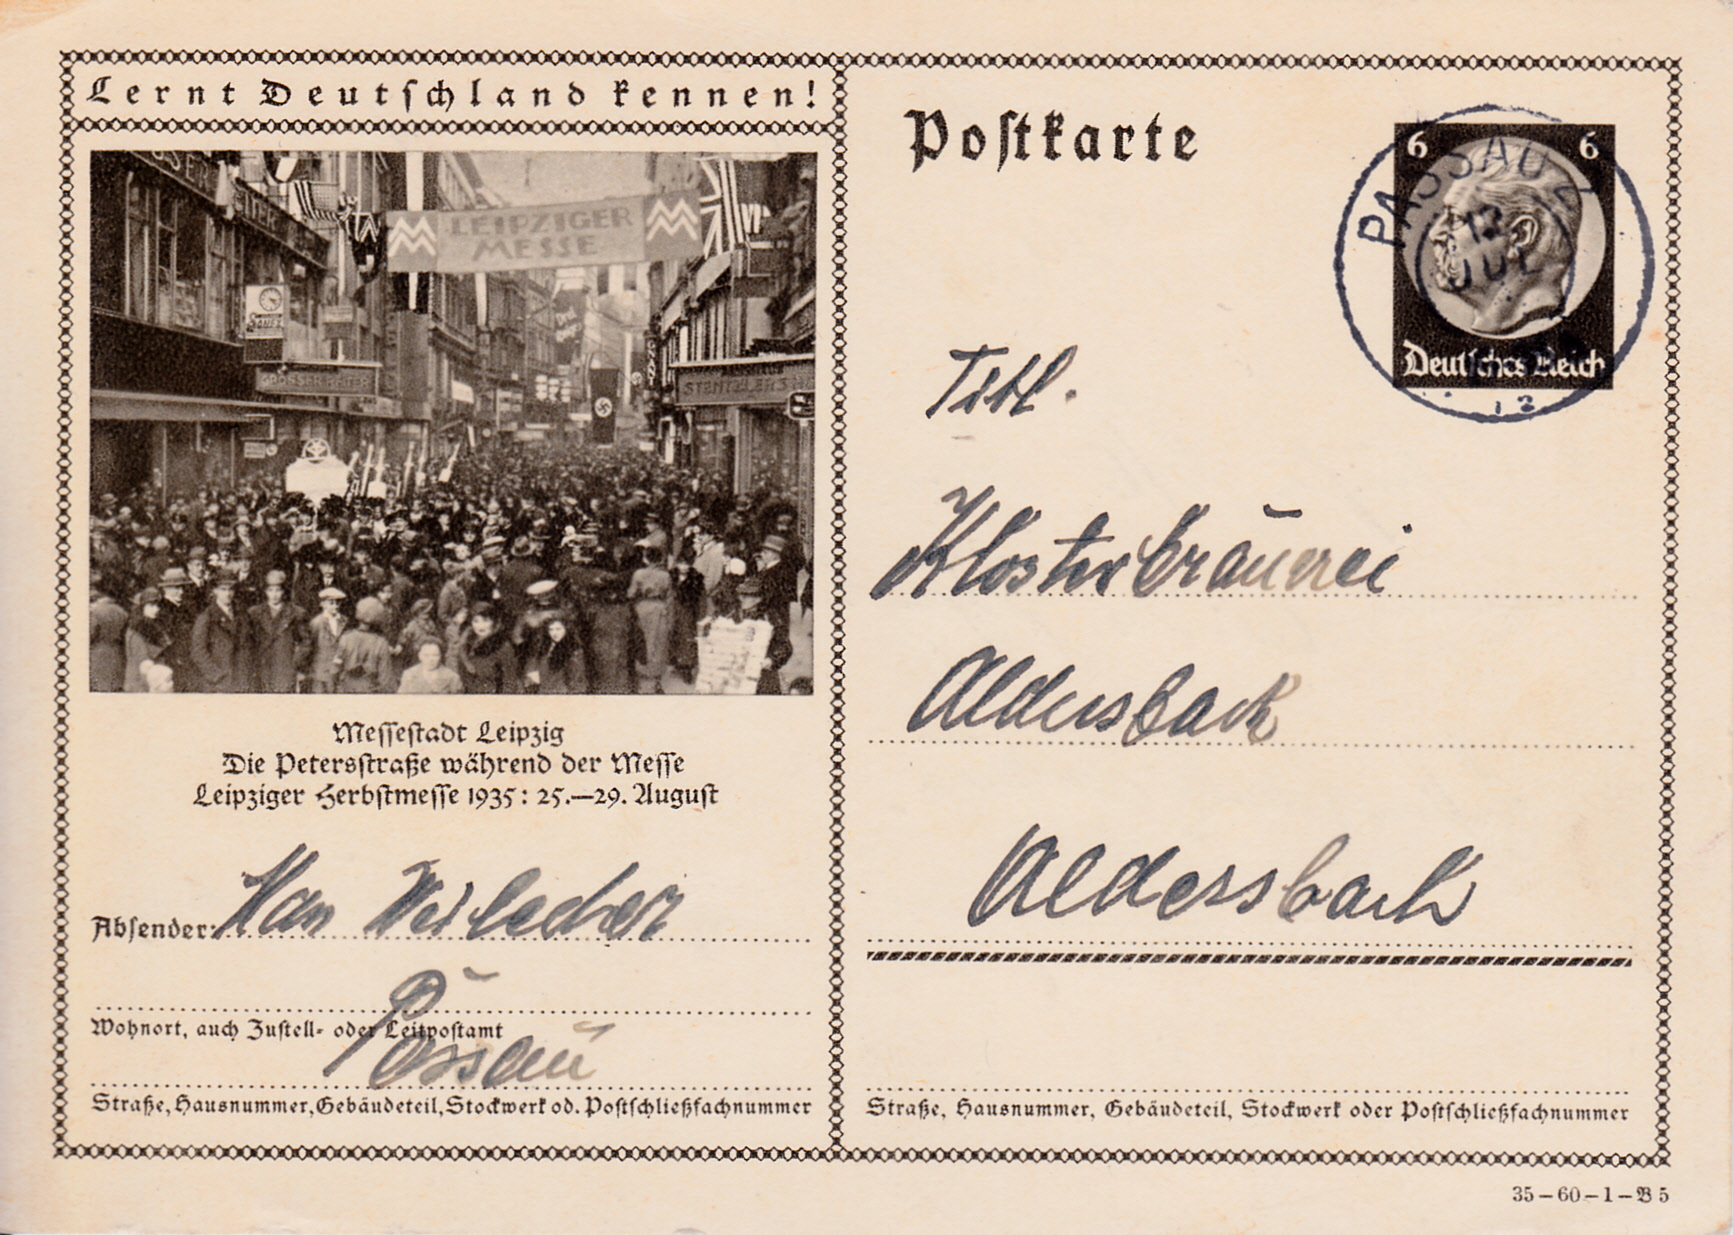 Lernt Deutschland kennen!
LEIPZIGER
MESSE
GROSSER REITER
STENTZLER'S
Messestadt Leipzig
Die Petersstraße während der Messe
Leipziger Herbstmesse 1935: 25.—29. August
Absender:
Passau
Wohnort, auch Zustell- oder Leitpostamt
Straße, Hausnummer, Gebäudeteil, Stockwerk od. Postschließfachnummer
Postkarte
6 6
Deutsches Reich
PASSAU 2
12
JUL
Titl.
Klosterbräuerei
Aldersbach
Aldersbach
Straße, Hausnummer, Gebäudeteil, Stockwerk oder Postschließfachnummer
35—60—1—B 5